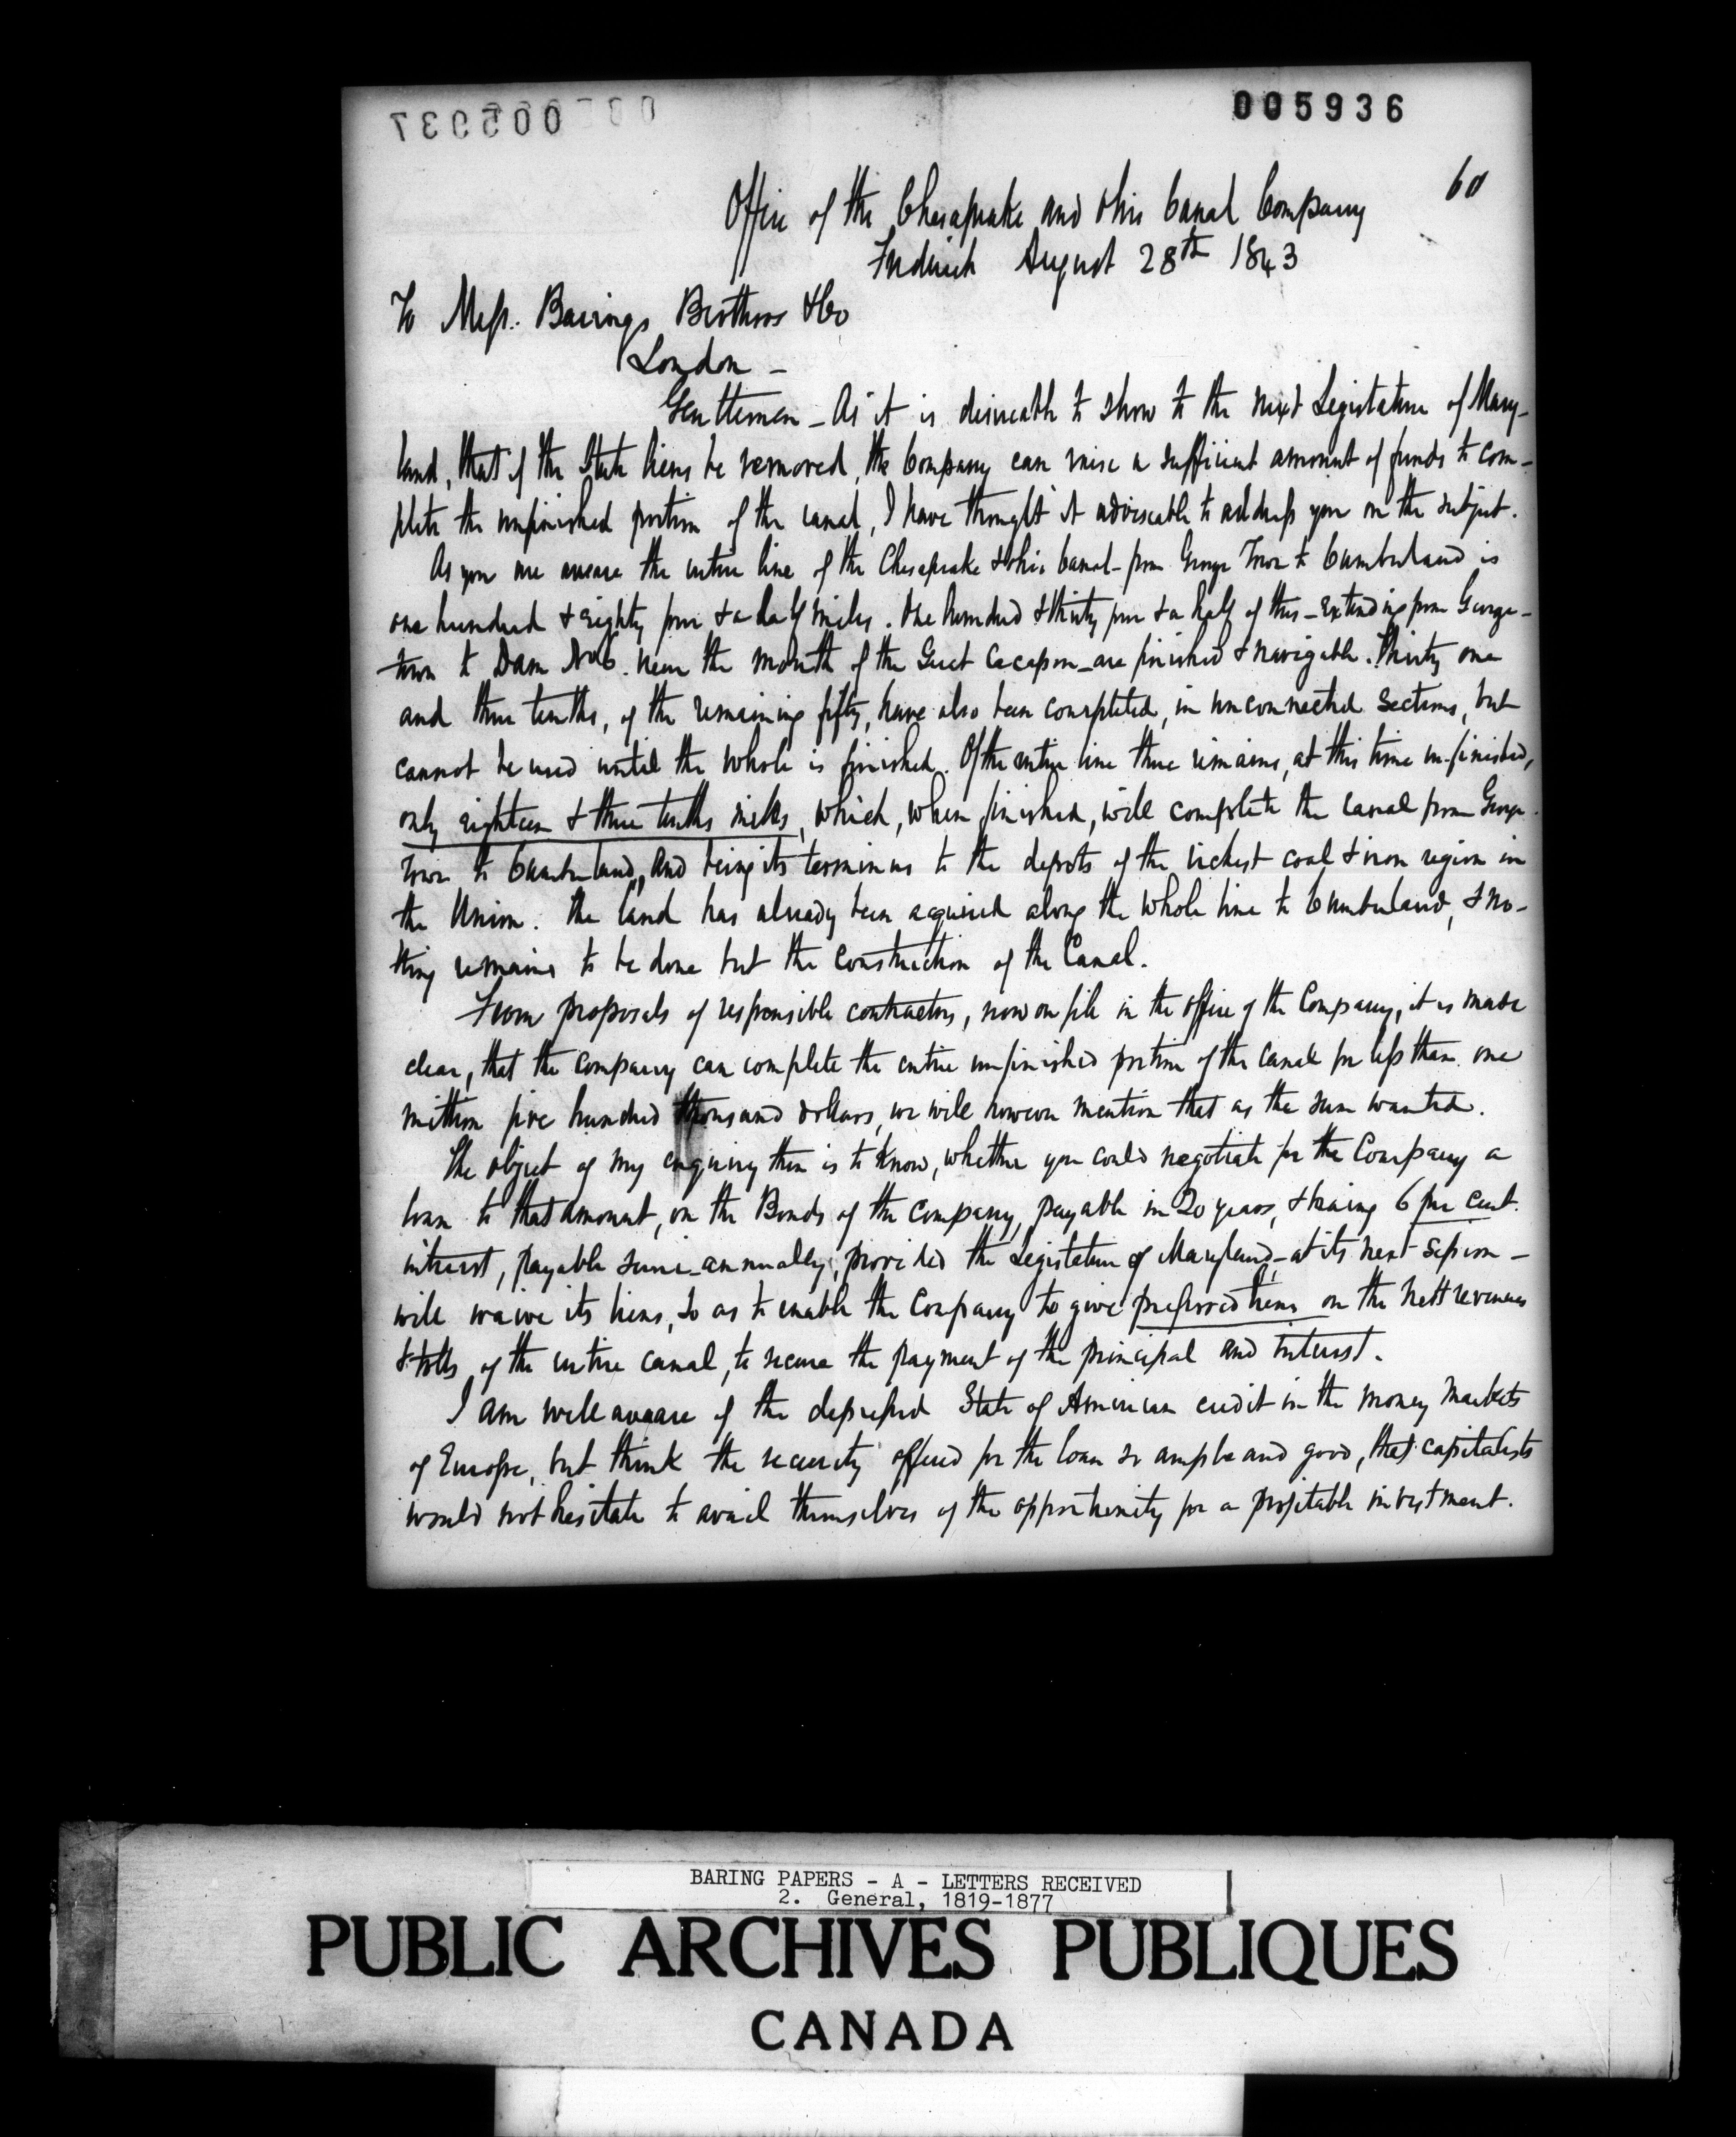 005937
005936
60
Office of the Chesapeake and Ohio Canal Company
Frederick August 28th 1843
To Mess. Barings Brothers & Co
London -
Gentlemen - As it is desireable to show to the next Legislature of Mary-
land, that if the State liens be removed, the Company can raise a sufficient amount of funds to com-
plete the unfinished portion of the canal, I have thought it adviseable to address you on the subject.
As you are aware the entire line of the Chesapeake & Ohio Canal - from George Town to Cumberland is
one hundred & eighty four & a half miles. One hundred & thirty four & a half of this - extending from George-
town to Dam No 6. near the mouth of the Great Cacapon - are finished & navigable. Thirty one
and three tenths, of the remaining fifty, have also been completed, in unconnected sections, but
cannot be used until the whole is finished. Of the entire line there remains, at this time un-finished,
only eighteen & three tenths miles, which, when finished, will complete the canal from George
Town to Cumberland, and bring its terminus to the depots of the richest coal & iron region in
the Union. The land has already been acquired along the whole line to Cumberland, & no-
thing remains to be done but the construction of the Canal.
From proposals of responsible contractors, now on file in the office of the Company, it is made
clear, that the company can complete the entire unfinished portion of the Canal for less than one
million five hundred thousand dollars, we will however mention that as the sum wanted.
The object of my enquiry then is to know, whether you could negotiate for the Company a
loan to that amount, on the Bonds of the Company, payable in 20 years, & bearing 6 per cent.
interest, payable semi-annually, provided the Legislature of Maryland, - at its next session -
will waive its liens, so as to enable the Company to give preferred liens on the nett revenues
& tolls of the entire canal, to secure the payment of the principal and interest.
I am well aware of the depressed State of American credit in the money markets
of Europe, but think the security offered for the loan so ample and good, that capitalists
would not hesitate to avail themselves of the opportunity for a profitable investment.
BARING PAPERS - A - LETTERS RECEIVED
2. General, 1819-1877
PUBLIC ARCHIVES PUBLIQUES
CANADA